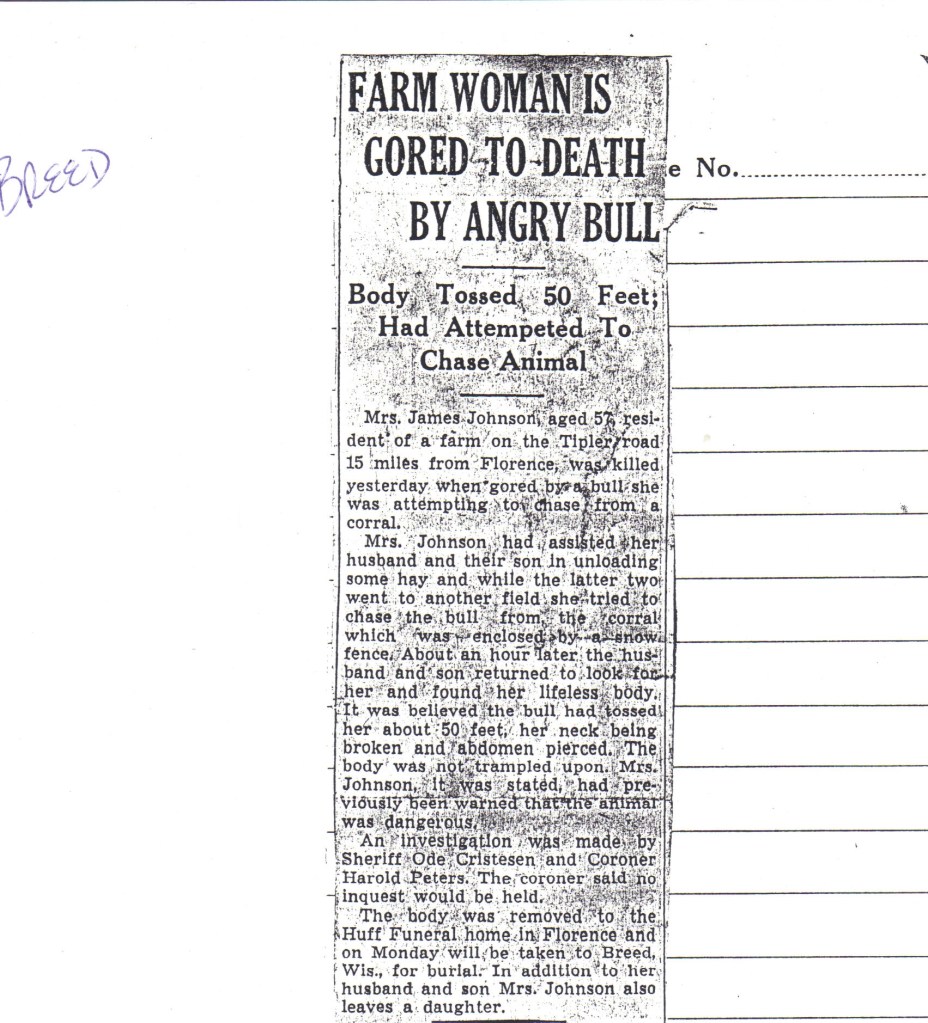 BREED
FARM WOMAN IS
GORED TO DEATH
BY ANGRY BULL
e No.
Body Tossed 50 Feet;
Had Attempeted To
Chase Animal
Mrs. James Johnson, aged 57, resi-
dent of a farm on the Tipler road
15 miles from Florence, was killed
yesterday when gored by a bull she
was attempting to chase from a
corral.
Mrs. Johnson had assisted her
husband and their son in unloading
some hay and while the latter two
went to another field she tried to
chase the bull from the corral
which was enclosed by a snow
fence. About an hour later the hus-
band and son returned to look for
her and found her lifeless body.
It was believed the bull had tossed
her about 50 feet, her neck being
broken and abdomen pierced. The
body was not trampled upon. Mrs.
Johnson, it was stated, had pre-
viously been warned that the animal
was dangerous.
An investigation was made by
Sheriff Ode Cristesen and Coroner
Harold Peters. The coroner said no
inquest would be held.
The body was removed to the
Huff Funeral home in Florence and
on Monday will be taken to Breed,
Wis., for burial. In addition to her
husband and son Mrs. Johnson also
leaves a daughter.